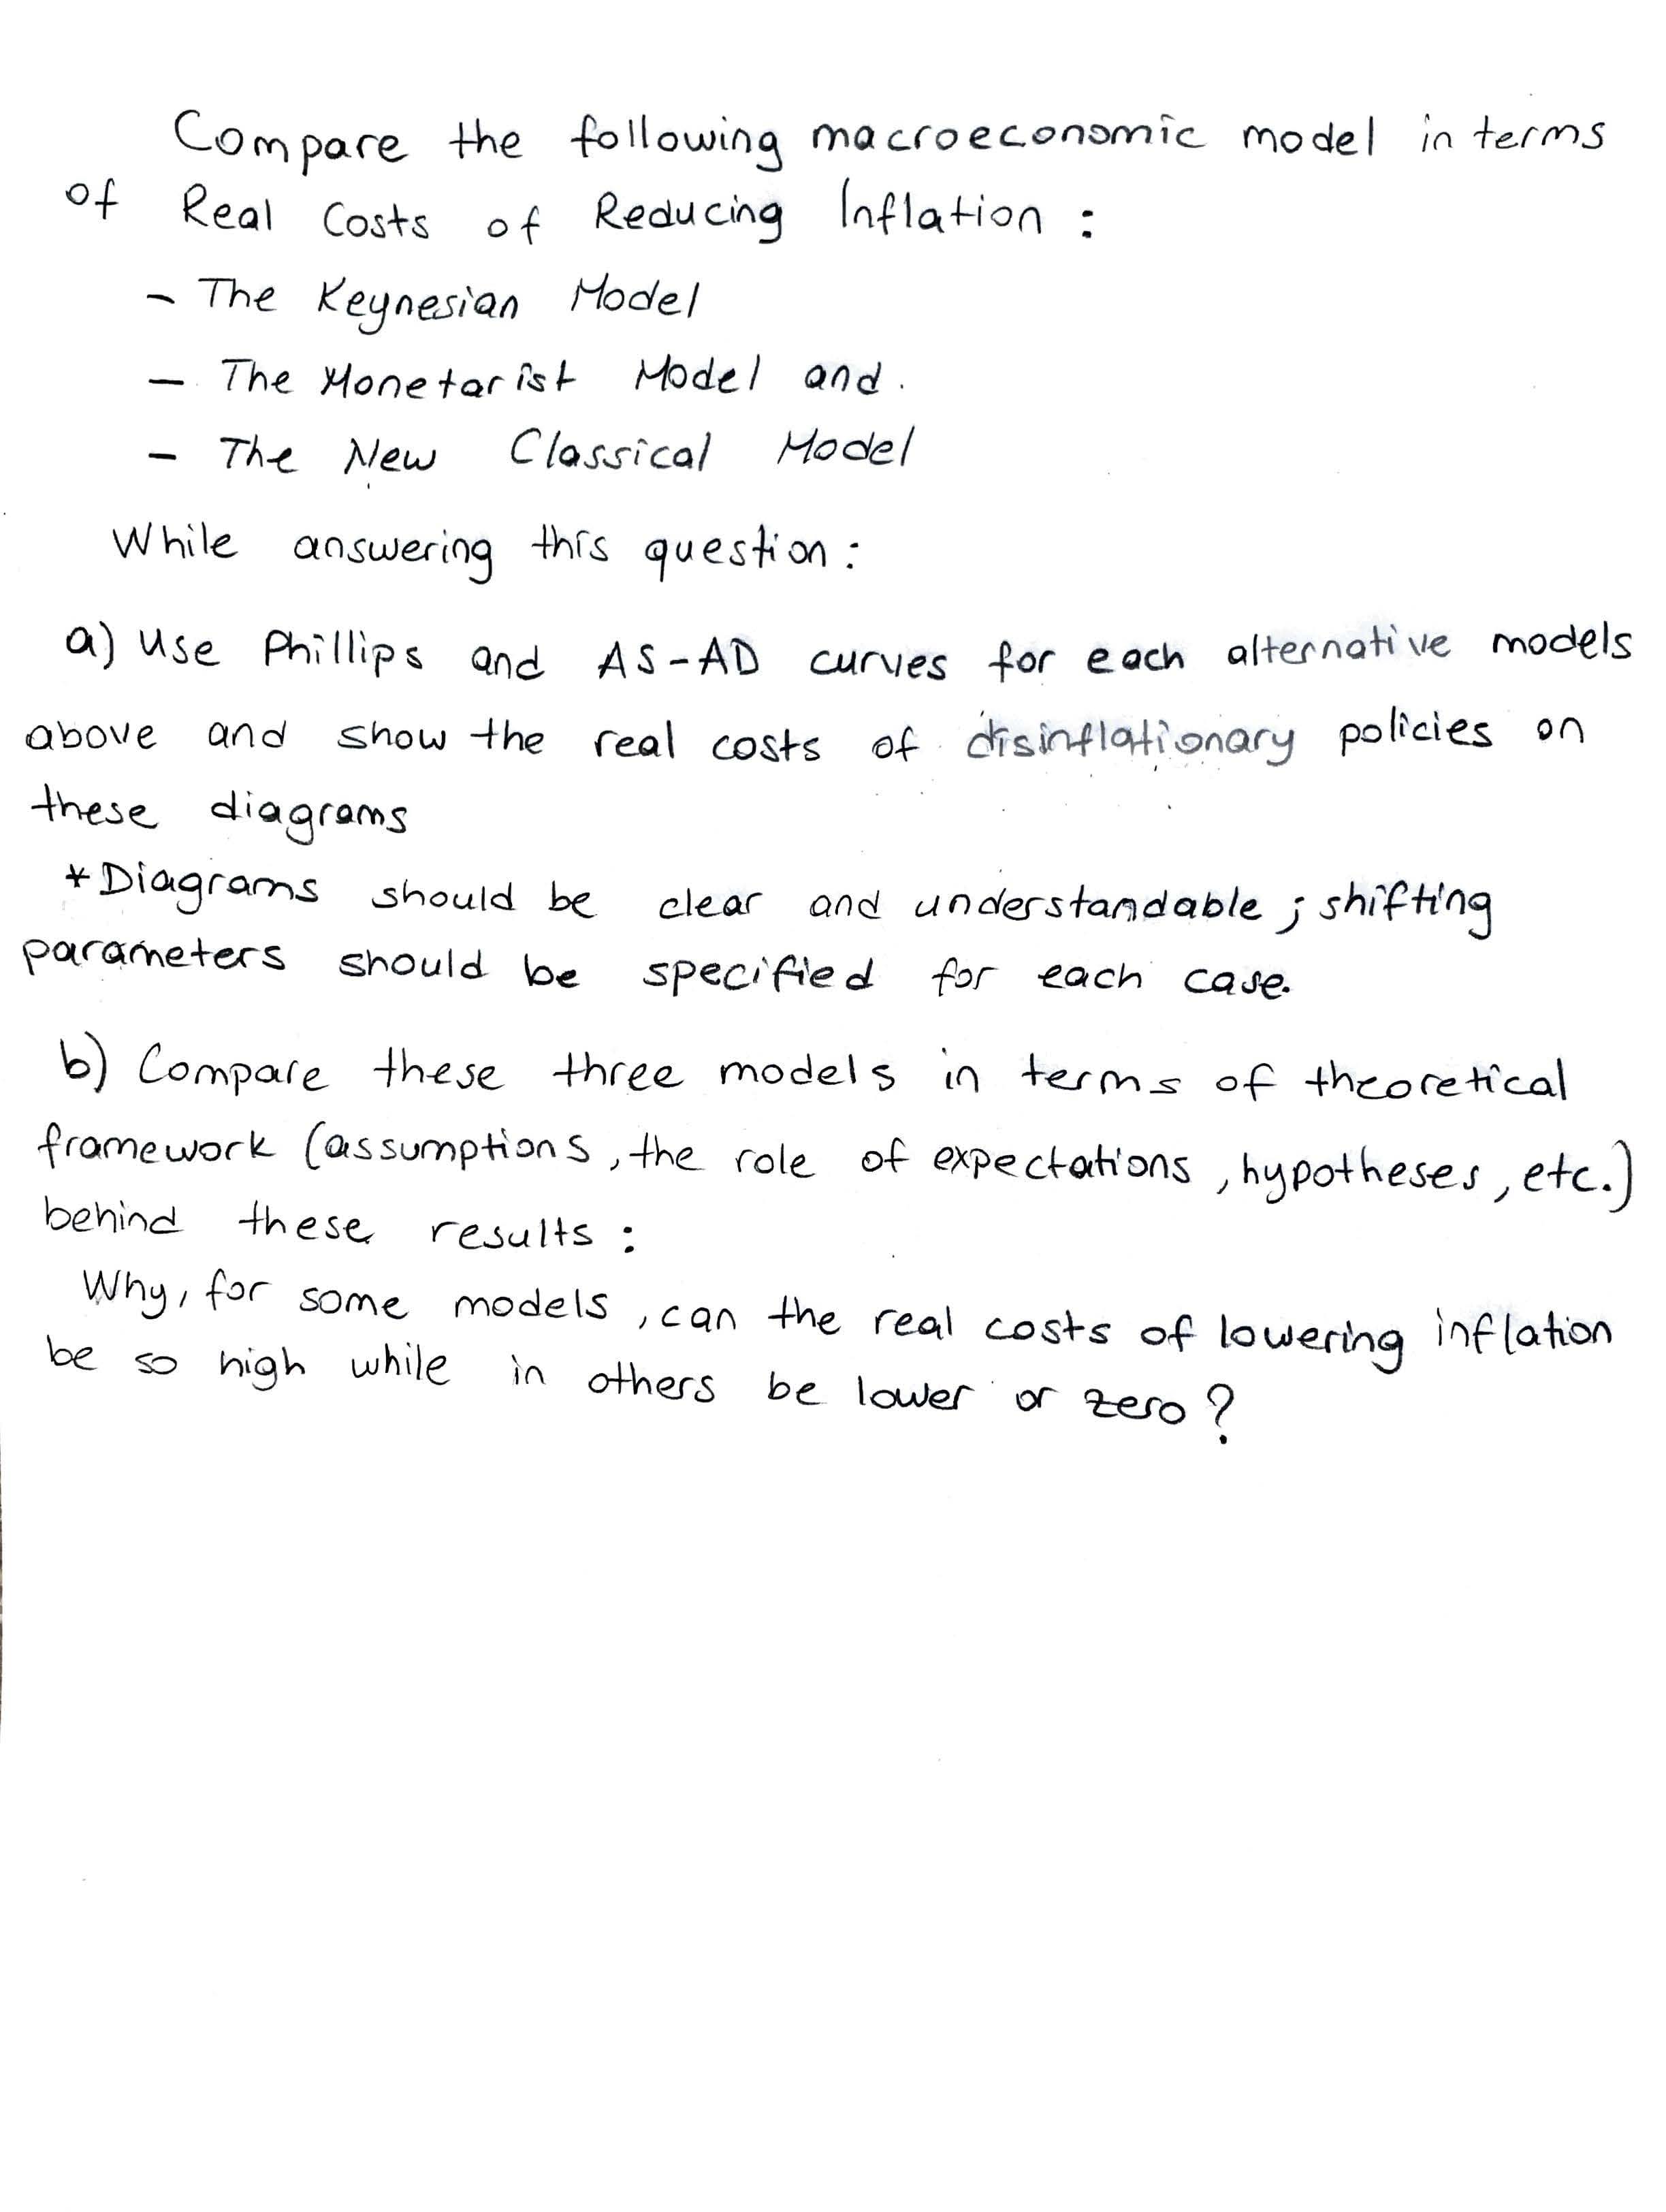 Compare the following macroeconomic model in terms
of Real Costs of Reducing Inflation :
- The Keynesian Model
- The Monetarist Model and.
- The New Classical Model
While answering this question :
a) Use Phillips and AS-AD curves for each alternative models
above and show the real costs of disinflationary policies on
these diagrams
* Diagrams should be clear and understandable ; shifting
parameters should be specified for each case.
b) Compare these three models in terms of theoretical
framework (assumptions, the role of expectations, hypotheses, etc.)
behind these results :
Why, for some models, can the real costs of lowering inflation
be so high while in others be lower or zero ?